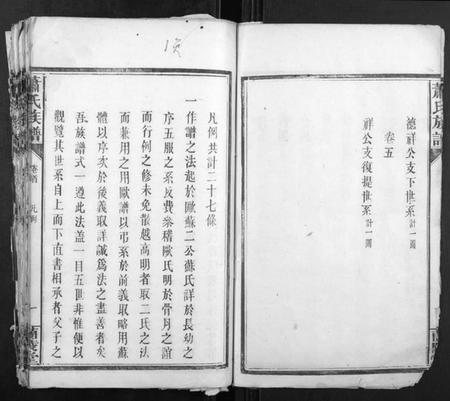 蕭氏族譜
德祥公支下世系計一圖
卷五
祥公支復提世系計一圖
凡例共計二十七條
一作譜之法起於歐蘇二公蘇氏詳於長幼之
序五服之系反費參稽歐氏明於骨月之誼
而行例之修未免散越高明者取二氏之法
而兼用之用歐譜以弔系於前義取略用蘇
體以序次於後義取詳誠為法之盡善者矣
吾族譜式一遵此法蓋一目五世非惟便以
觀覽其世系自上而下直書相承者父子之
蕭氏族譜
卷首
凡例
一